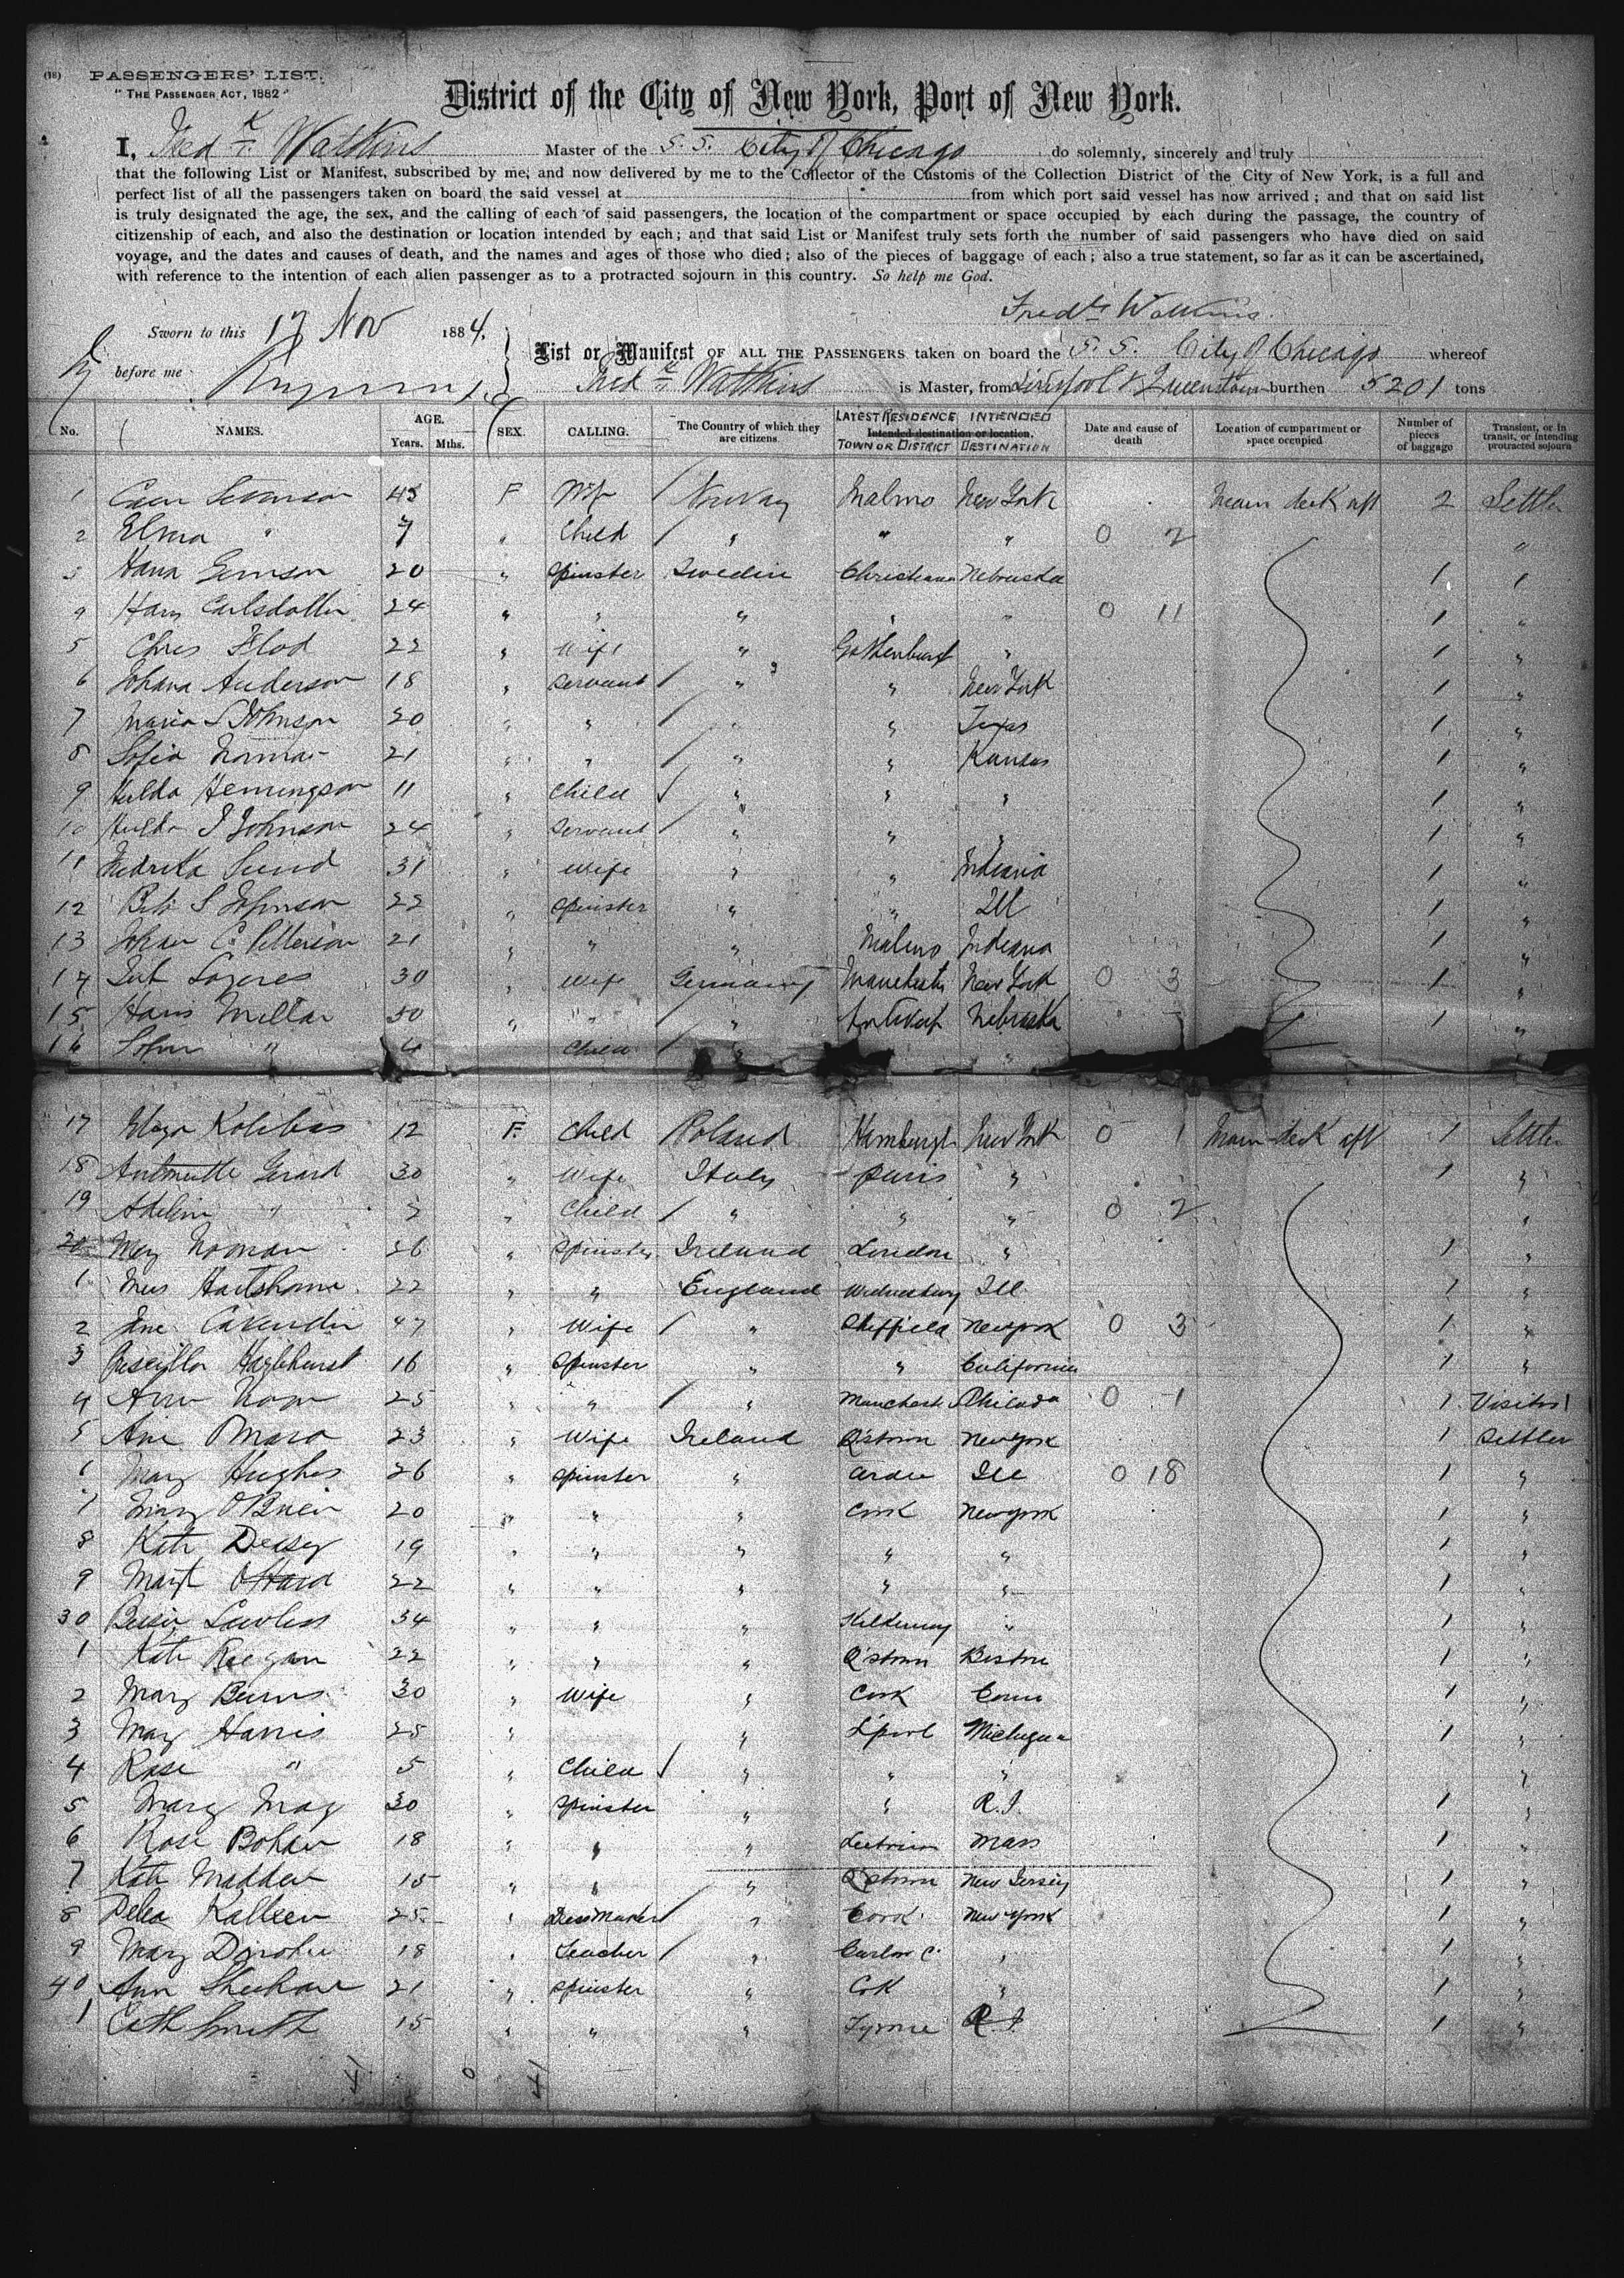 (18) PASSENGERS' LIST.
"THE PASSENGER ACT, 1882"
District of the City of New York, Port of New York.
I, Fredk Watkins Master of the S.S. City of Chicago do solemnly, sincerely and truly
that the following List or Manifest, subscribed by me, and now delivered by me to the Collector of the Customs of the Collection District of the City of New York, is a full and
perfect list of all the passengers taken on board the said vessel at from which port said vessel has now arrived; and that on said list
is truly designated the age, the sex, and the calling of each of said passengers, the location of the compartment or space occupied by each during the passage, the country of
citizenship of each, and also the destination or location intended by each; and that said List or Manifest truly sets forth the number of said passengers who have died on said
voyage, and the dates and causes of death, and the names and ages of those who died; also of the pieces of baggage of each; also a true statement, so far as it can be ascertained,
with reference to the intention of each alien passenger as to a protracted sojourn in this country. So help me God.
Fredk Watkins
Sworn to this 17 Nov 1884.
before me
List or Manifest OF ALL THE PASSENGERS taken on board the S.S. City of Chicago whereof
Fredk Watkins is Master, from Liverpool & Queenstown burthen 5201 tons
No. NAMES. AGE. Years. Mths. SEX. CALLING. The Country of which they are citizens. LATEST RESIDENCE TOWN OR DISTRICT INTENDED DESTINATION Intended destination or location. Date and cause of death Location of compartment or space occupied Number of pieces of baggage Transient, or in transit, or intending protracted sojourn
1 45 F Wife Norway Malmo New York Main deck aft 2 Settler
2 Elma " 7 " Child " " " 0 2 "
3 Hana 20 " Spinster Sweden Christiana Nebraska 1 1
4 Carlsdotter 24 " " " " " 0 11 1 "
5 Chris Flod 22 " Wife " Gothenburg " 1 "
6 Johana Anderson 18 " Servant " " New York 1 "
7 Maria S Johnson 20 " " " " Texas 1 "
8 Sofia 21 " " " " Kansas 1 "
9 Hulda Hemingson 11 " Child " " " 1 "
10 Hulda J Johnson 24 " Servant " " " 1 "
11 Fredrika Lund 31 " Wife " " Indiana 1 "
12 S Johnson 22 " Spinster " " Ill 1 "
13 Johan C. Petterson 21 " " " Malmo Indiana 1 "
14 30 " Wife Germany Manchester New York 0 3 1 "
15 Hans Millar 30 " " " Antwerp Nebraska 1 "
16 " Child " " "
17 12 F. Child Poland Hamburgh New York 0 1 Main deck aft 1 Settler
18 Antoinette Gerard 30 " Wife Italy Paris " 1 "
19 Adeline " 2 " Child " " " 0 2 "
20 Mary Noonan 26 " Spinster Ireland London " 1 "
1 Hartshorne 22 " " England Wednesbury Ill 1 "
2 Jane Cavender 47 " Wife " Sheffield New York 0 3 1 "
3 Priscilla Hazlehurst 16 " Spinster " " California 1 "
4 25 " " " Manchester Philada 0 1 1 Visitor
5 Ann 23 " Wife Ireland Q'stown New York 1 Settler
6 Mary Hughes 26 " Spinster " Ardee Ill 0 18 1 "
7 Mary O'Brien 20 " " " Cork New York 1 "
8 Kate Deasy 19 " " " " " 1 "
9 22 " " " " " 1 "
30 Lawless 34 " " " Kilkenny " 1 "
1 Kate Reegan 22 " " " Q'stown Boston 1 "
2 Mary Burns 30 " Wife " Cork Conn 1 "
3 Mary Harris 25 " " L'pool Michigan 1 "
4 Rose " 5 " Child " " " "
5 Mary May 30 " Spinster " " R.I. 1 "
6 Rose Bohan 18 " " " Leitrim Mass 1 "
7 Kate Madden 15 " " " Q'stown New Jersey 1 "
8 Delia 25 " Dress Maker " Cork New York 1 "
9 Mary 18 " Teacher " Carlow C. " 1 "
40 Ann Sheehan 21 " Spinster " Cork " 1 "
1 Cath Smith 15 " " " Tyrone R.I. 1 "